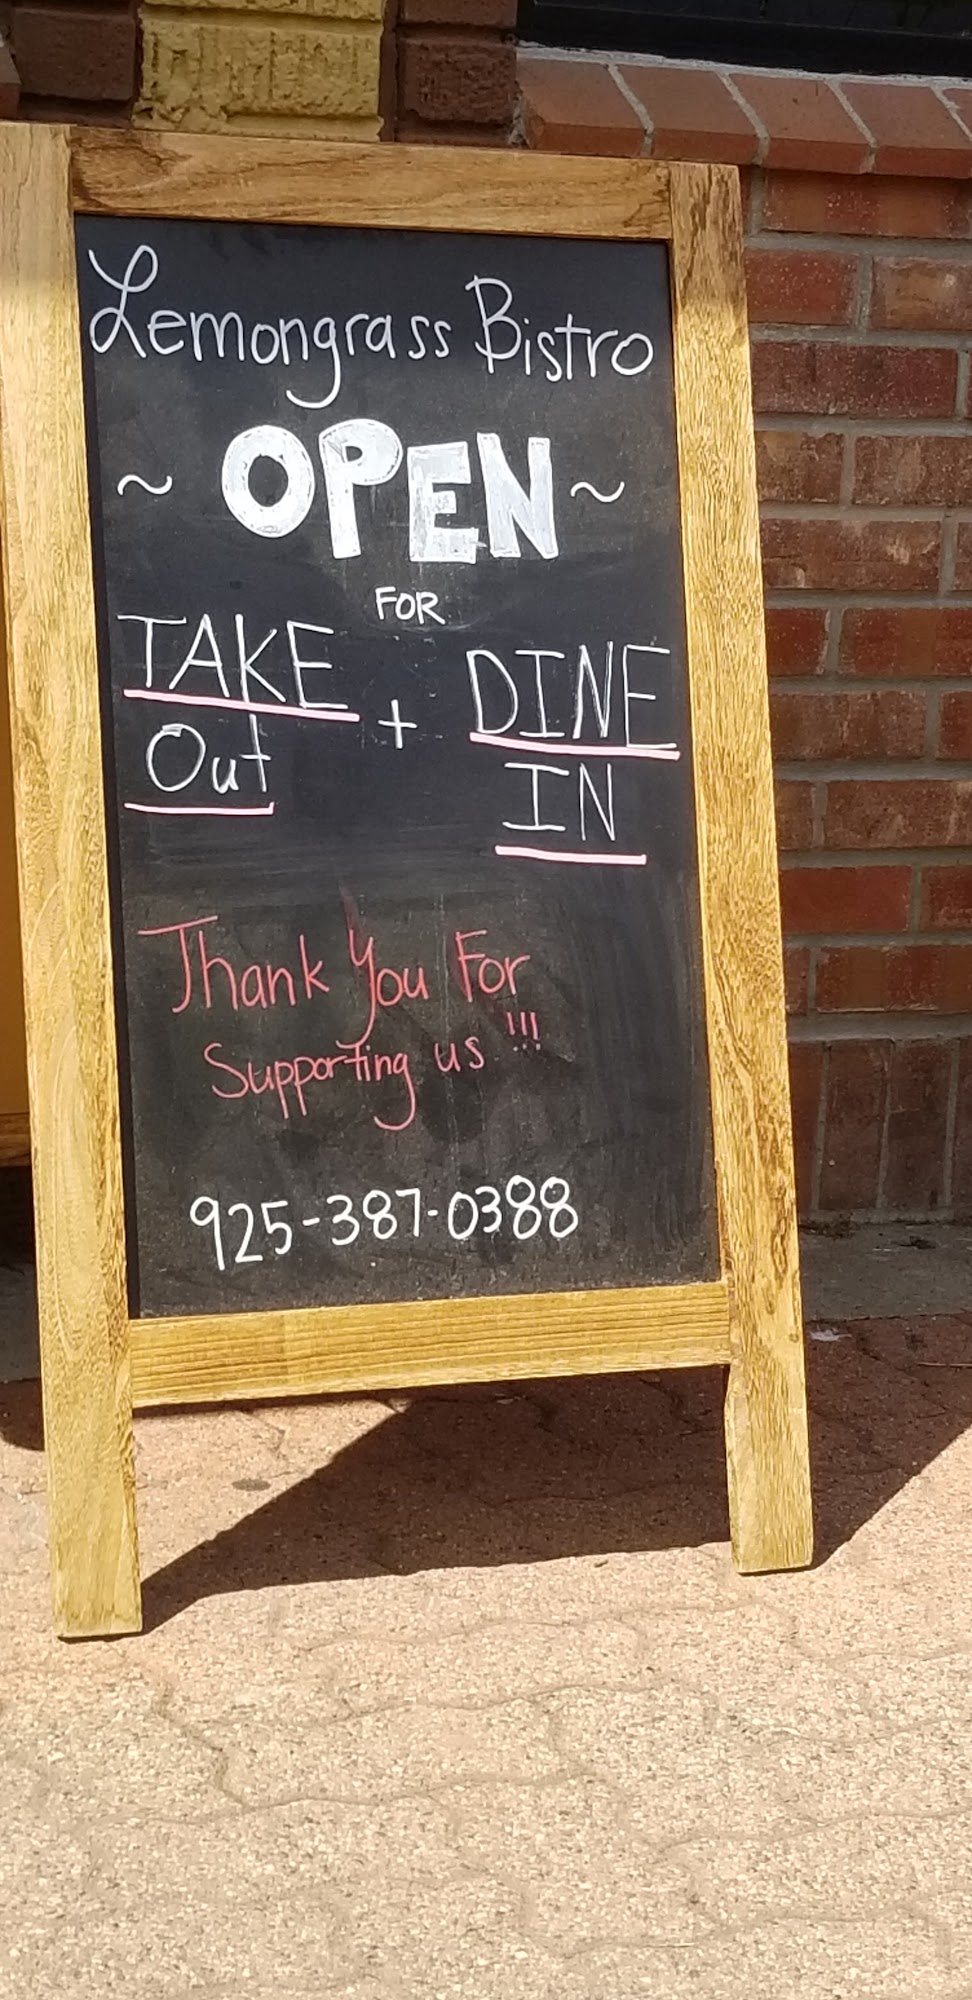 Lemongrass Bistro
~ OPEN ~
FOR
TAKE Out + DINE IN
Thank You For
Supporting us !!!
925-387-0388